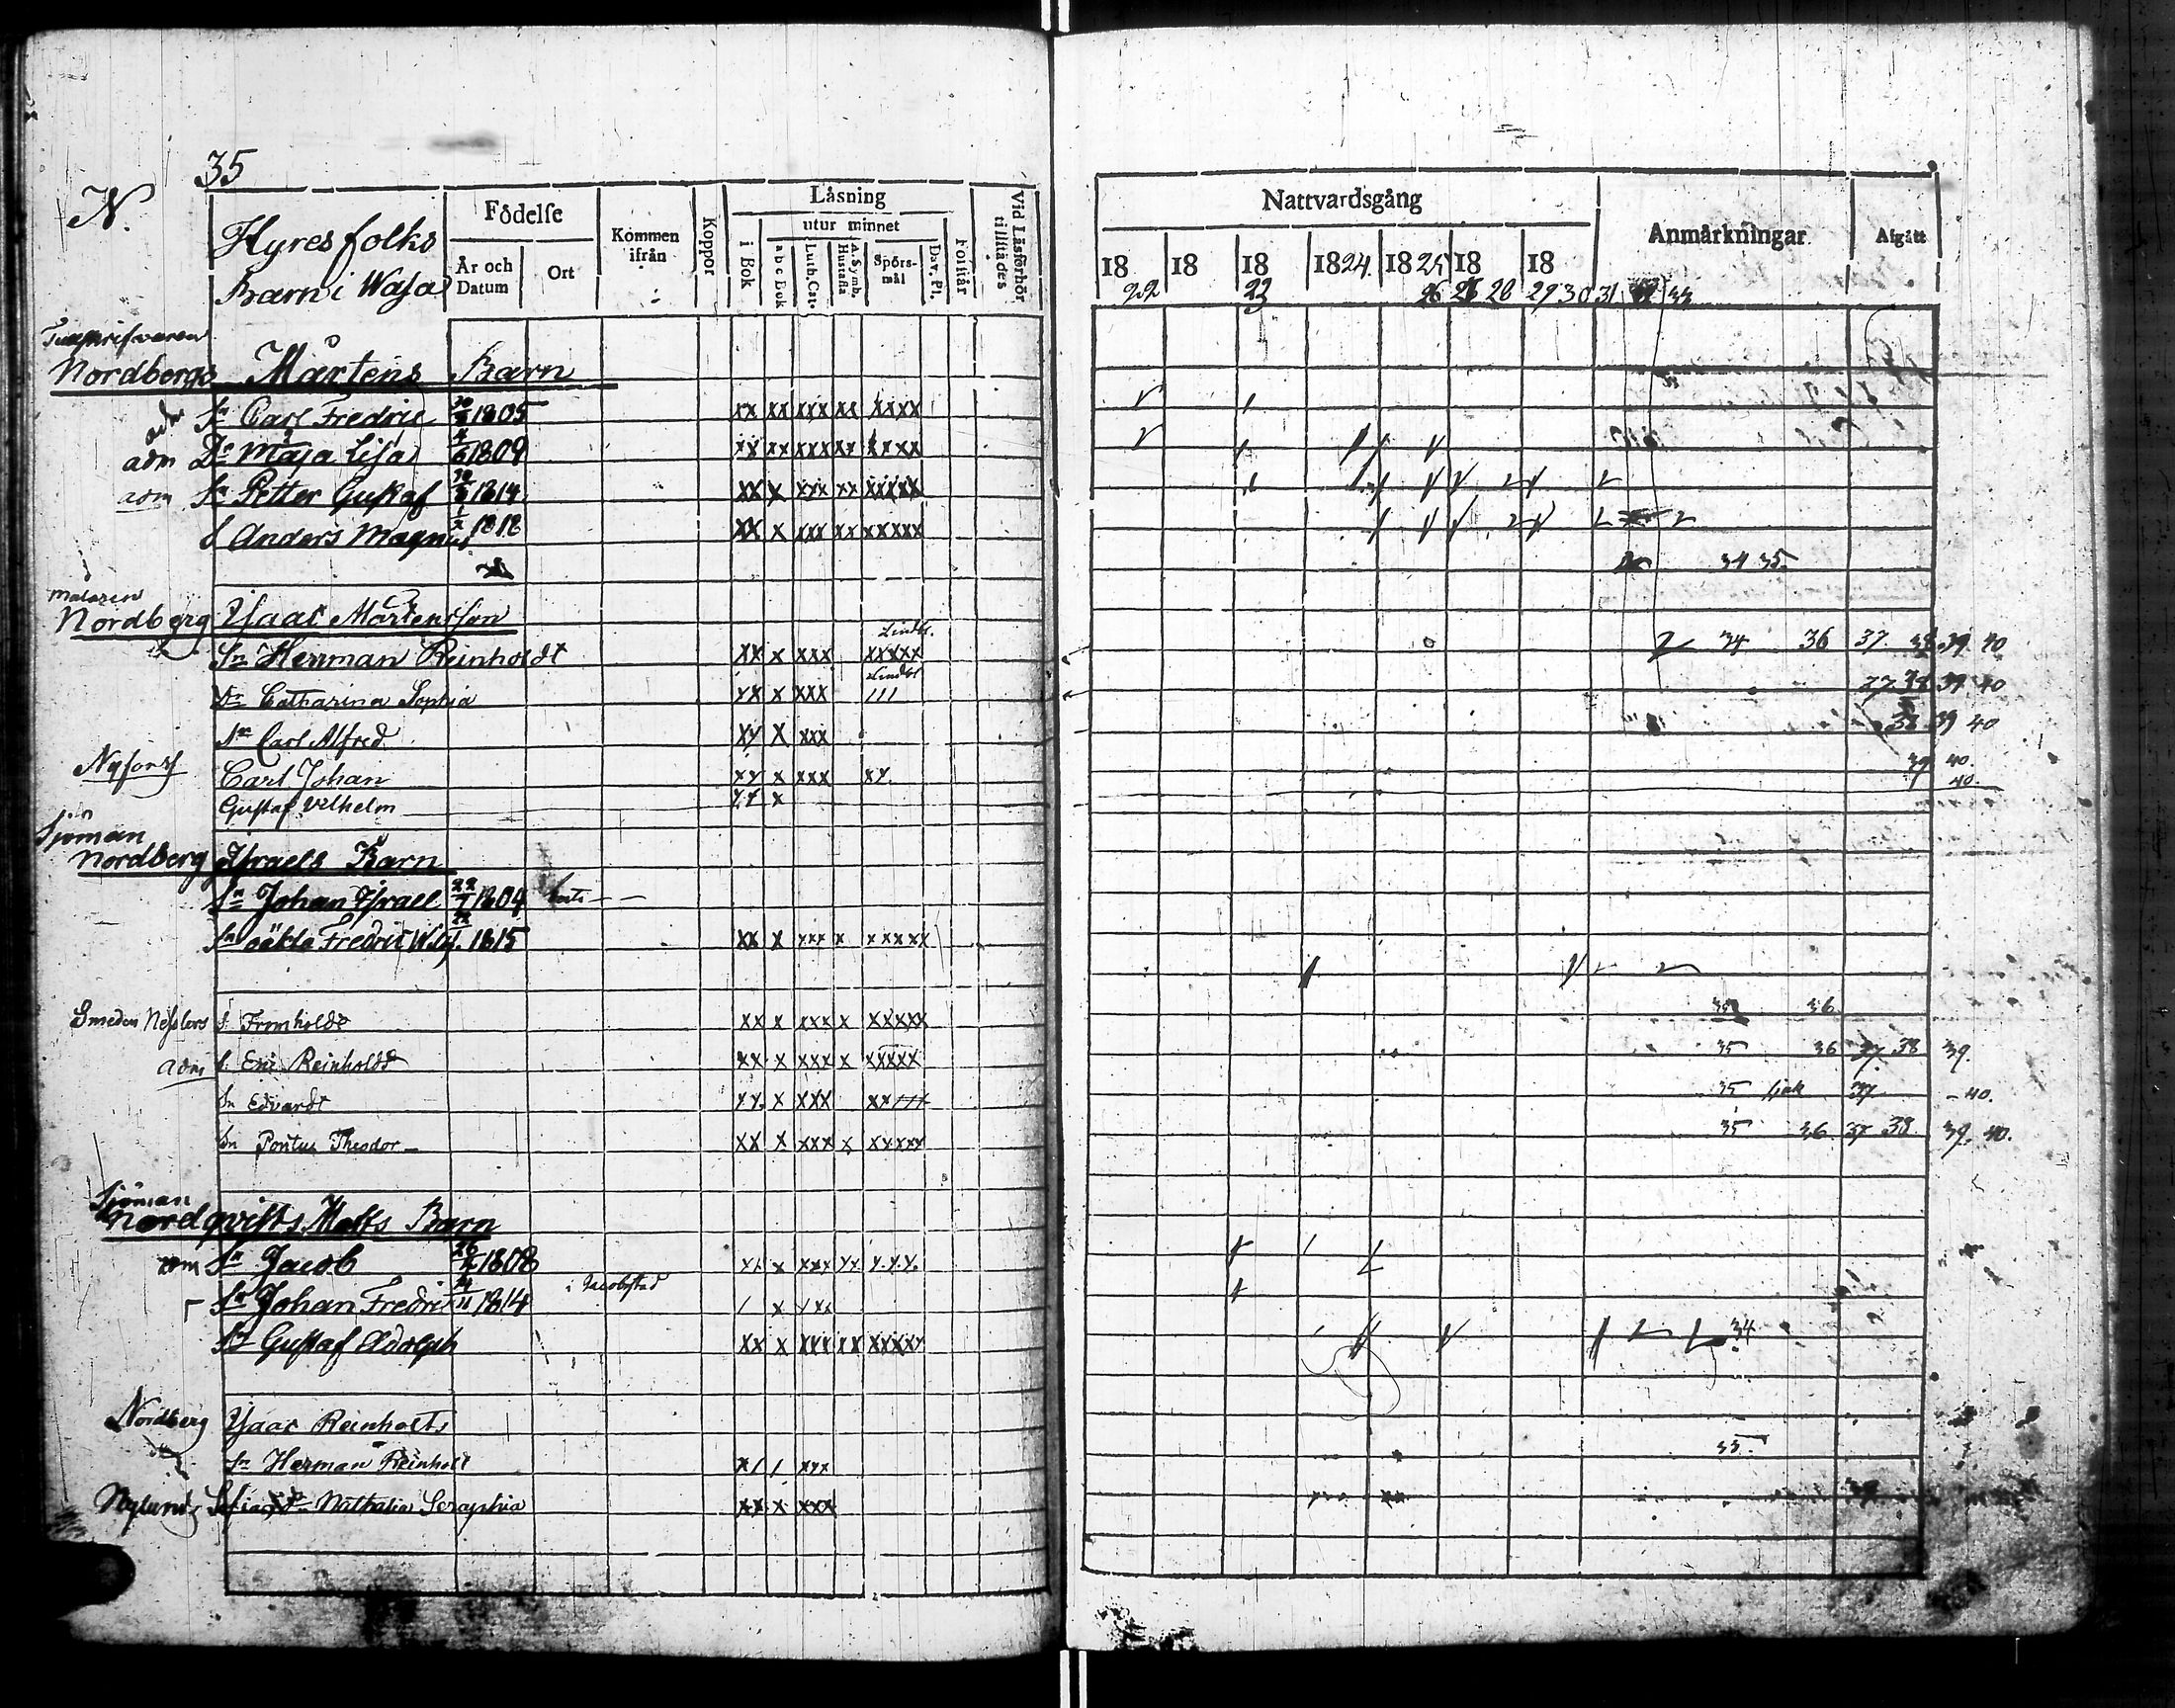 35
N.
Hyres folks
Barn i Wasa
Födelse
År och Datum
Ort
Kommen ifrån
Koppor
Låsning
utur minnet
i Bok
abc Bok
Luth. Cat.
A. Symb. Hustafla
Spörsmål
Dav. Ps.
Förstår
Vid Låsförhör tillstädes
Nattvardsgång
18 22
18
18 23
1824
1825
18
18
26 28
29 30 31
33
Anmärkningar
Afgått
Nordbergs Mårtens Barn
adm Sn Carl Fredric 1805 xx xx xxx xx xxxx
adm Dr Maja Lisa 4/6 1809 xx xx xxx xx xxxx
adm Sn Petter Gustaf 1814 xx x xxx xx xxxxx
S Anders Magnus 1818 xx x xxx xx xxxxx
34 35
målaren
Nordberg Isaac Mårtensson
Sn Herman Reinholdt xx x xxx xxxxx 34 36 37 38 39 40
Dr Catharina Sophia xx x xxx /// 38 39 40
Sn Carl Alfred xx x xxx 38 39 40
Nyfors Carl Johan xx x xxx xx 39 40.
Gustaf Vilhelm xx x 40.
Sjöman
Nordberg Israels Barn
Sn Johan Israel 22 1804 borta
Sn oäkta Fredric 1815 xx x xxx x xxxxx
Smeden Nesslers S. Fromholdt xx x xxx x xxxxx 35 36
adm S. Eric Reinholdt xx x xxx x xxxxx 35 36 37 38 39
Sn Edvardt xx x xxx 35 sjuk 37 40.
Sn Pontus Theodor xx x xxx x xxxxx 35 36 37 38 39. 40.
Sjöman
Nordqvists Matts Barn
adm Sn Jacob 26 1808 x x xxx xx x.x.x.
Sn Johan Fredric 1814 i Jacobstad / x
Sn Gustaf Adolph xx x xxx xx xxxxx 34
Nordberg Isaac Reinholts
Sn Herman Reinholt x/ / xxx 35
Nylund Sofias Dr Nathalia Seraphia xx x xxx